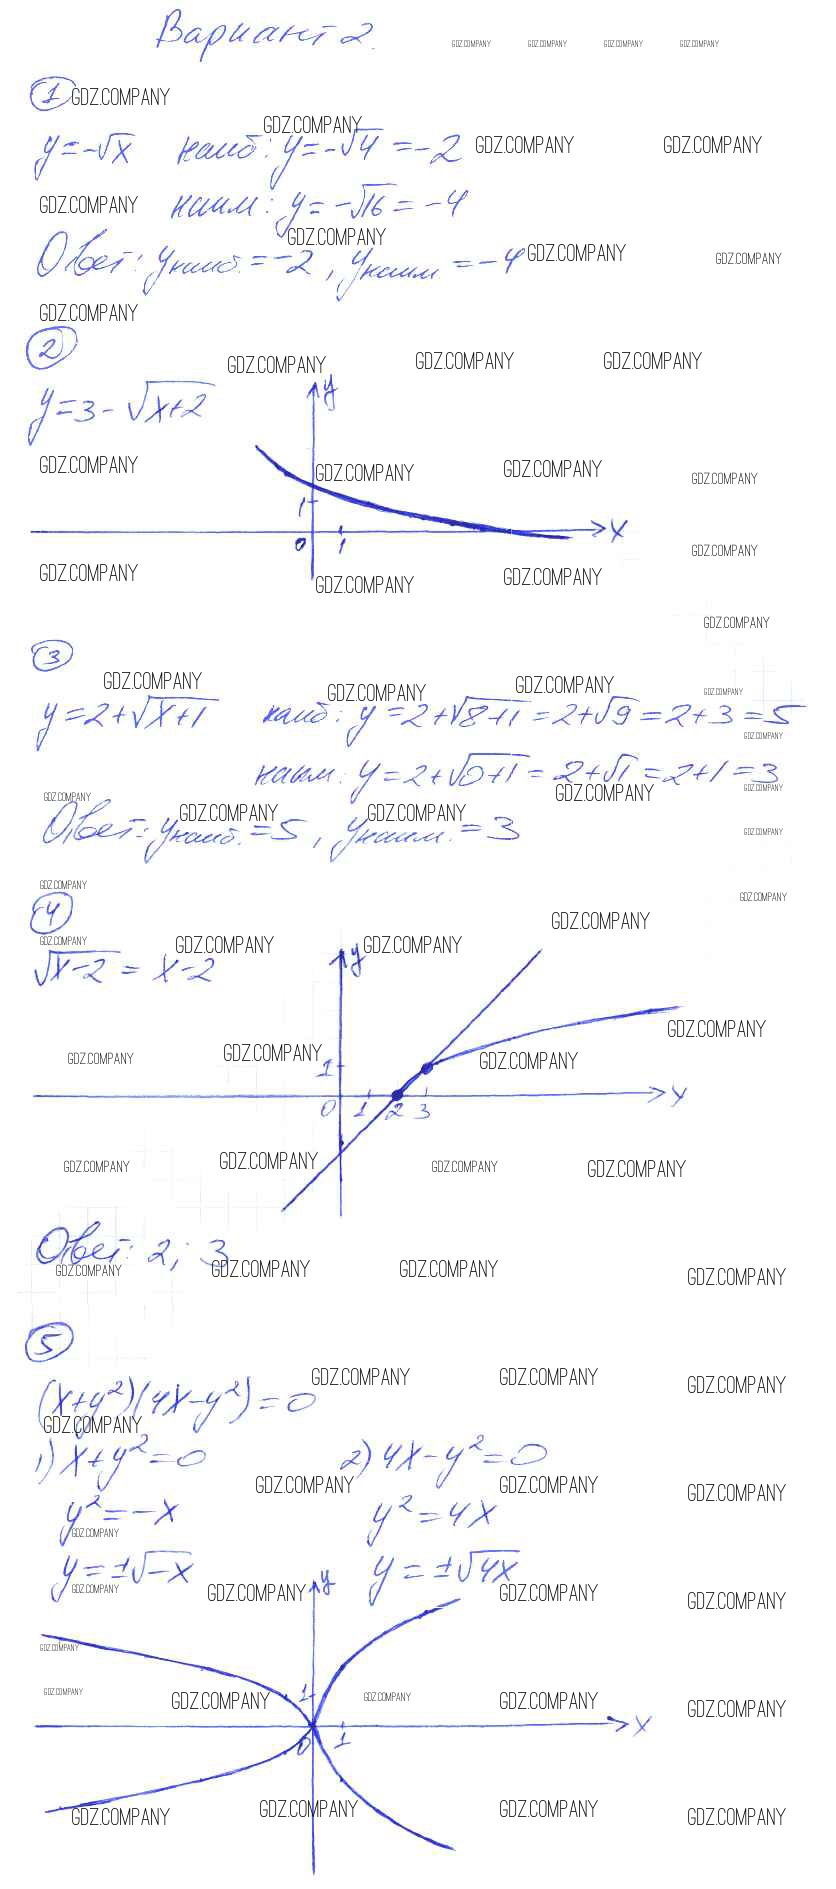 Вариант 2.
GDZ.COMPANY GDZ.COMPANY GDZ.COMPANY GDZ.COMPANY
1 GDZ.COMPANY
GDZ.COMPANY
y=-√x наиб: y=-√4=-2 GDZ.COMPANY GDZ.COMPANY
GDZ.COMPANY наим: y=-√16=-4
GDZ.COMPANY
Ответ: yнаиб.=-2, yнаим.=-4 GDZ.COMPANY GDZ.COMPANY
GDZ.COMPANY
2
GDZ.COMPANY GDZ.COMPANY GDZ.COMPANY
y
y=3-√x+2
GDZ.COMPANY GDZ.COMPANY GDZ.COMPANY GDZ.COMPANY
1
x
0 1
GDZ.COMPANY
GDZ.COMPANY GDZ.COMPANY GDZ.COMPANY
GDZ.COMPANY
3
GDZ.COMPANY GDZ.COMPANY GDZ.COMPANY GDZ.COMPANY
y=2+√x+1 наиб: y=2+√8+1=2+√9=2+3=5
GDZ.COMPANY
наим: y=2+√0+1=2+√1=2+1=3
GDZ.COMPANY GDZ.COMPANY GDZ.COMPANY
GDZ.COMPANY GDZ.COMPANY
Ответ: yнаиб.=5, yнаим.=3 GDZ.COMPANY
GDZ.COMPANY GDZ.COMPANY
4
GDZ.COMPANY
GDZ.COMPANY GDZ.COMPANY GDZ.COMPANY
y
√x-2=x-2
GDZ.COMPANY
GDZ.COMPANY GDZ.COMPANY GDZ.COMPANY
1
x
0 1 2 3
GDZ.COMPANY GDZ.COMPANY GDZ.COMPANY GDZ.COMPANY
Ответ: 2; 3
GDZ.COMPANY GDZ.COMPANY GDZ.COMPANY GDZ.COMPANY
5
GDZ.COMPANY GDZ.COMPANY GDZ.COMPANY
(x+y²)(4x-y²)=0
GDZ.COMPANY
1) x+y²=0 2) 4x-y²=0
GDZ.COMPANY GDZ.COMPANY GDZ.COMPANY
y²=-x y²=4x
GDZ.COMPANY
y=±√-x y=±√4x
y
GDZ.COMPANY GDZ.COMPANY GDZ.COMPANY GDZ.COMPANY
GDZ.COMPANY
GDZ.COMPANY GDZ.COMPANY GDZ.COMPANY GDZ.COMPANY GDZ.COMPANY
1
x
0 1
GDZ.COMPANY GDZ.COMPANY GDZ.COMPANY GDZ.COMPANY